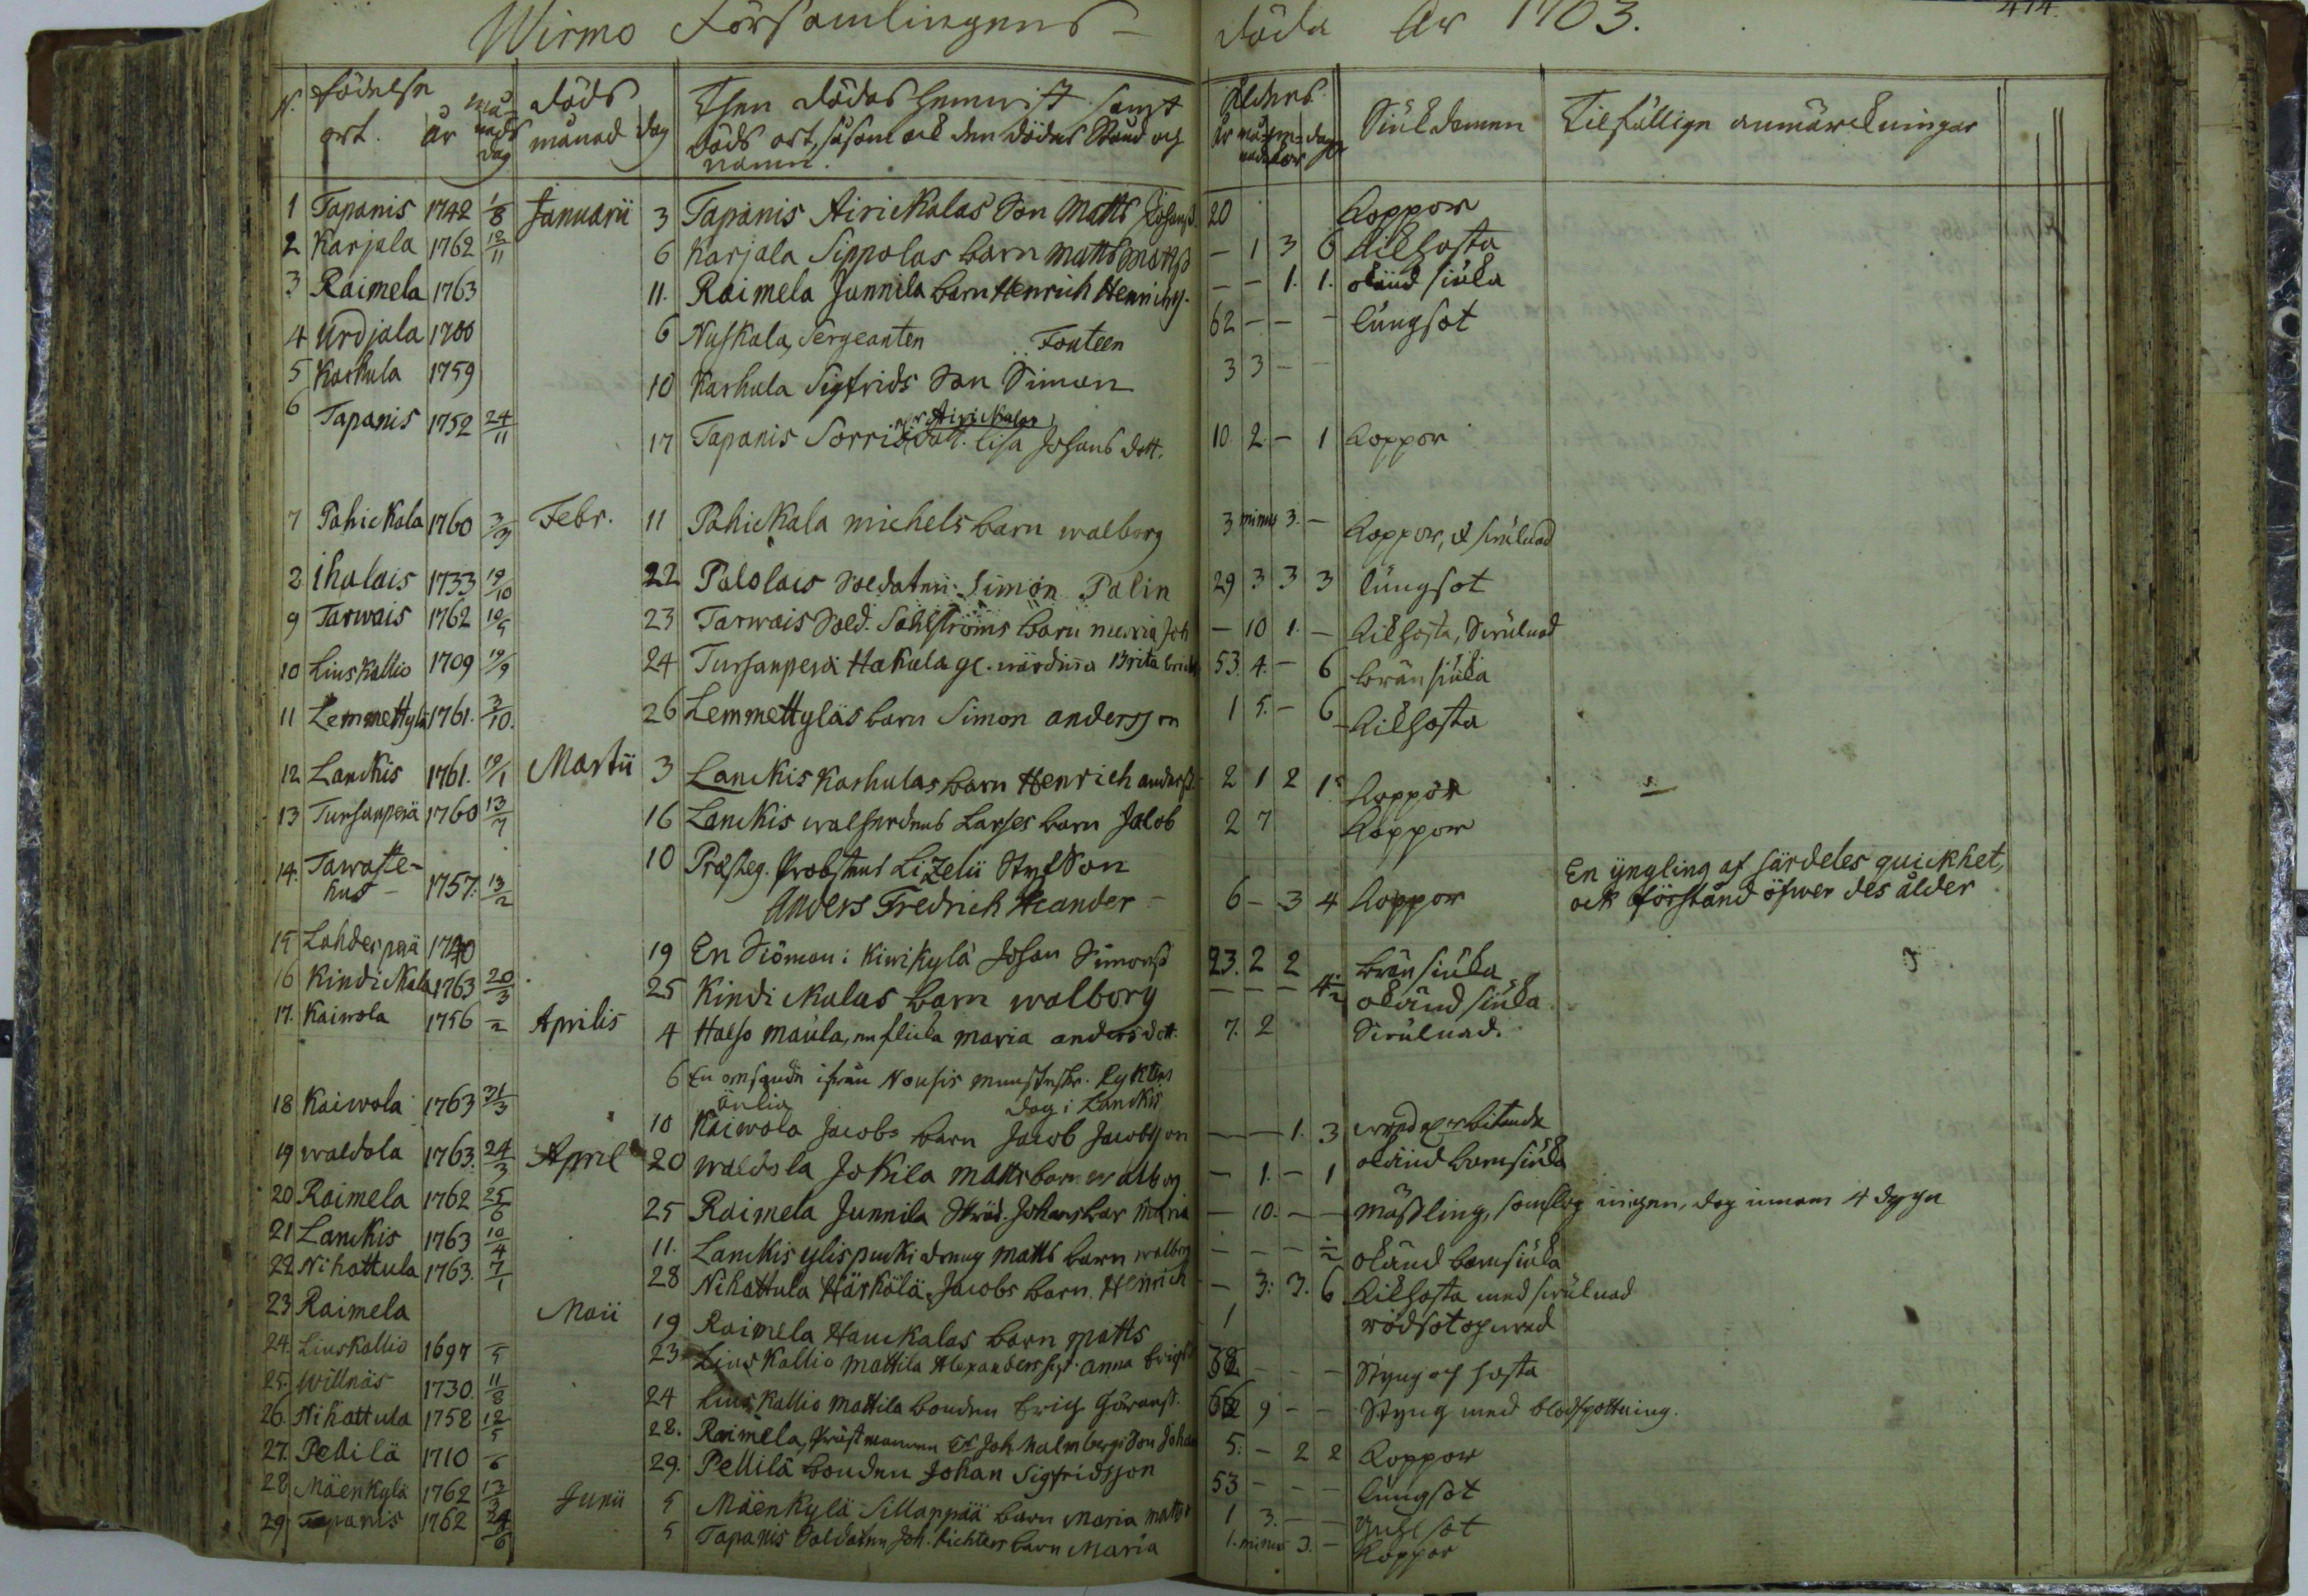 Wirmo Församlingens – döda Åhr 1763.
414.
N. födelse ort. år månads dag döds månad dag Then dödas hemvist samt döds ort, såsom ock den dödas Stånd och namn. Åldrens år månader dagar Siukdomen Tilfällige anmärckningar
1 Tapanis 1742 1/8 Januarii 3 Tapanis Airickalas Son Matts Johanss. 20 Koppor
2 Karjala 1762 12/11 6 Karjala Sippolas barn Matts Matss – 1 3 6 Kikhosta
3 Raimela 1763 11. Raimela Junnila barn Henrich Henrichss. – – 1. 1. okänd siuka
4 Urdjala 1700 6 Nuskala, Sergeanten Fonteen 62 – – – lungsot
5 Karhula 1759 10 Karhula Sigfrids Son Simon 3 3 – –
6 Tapanis 1752 24/11 17 Tapanis Sorris Airickalas dott. Lisa Johans dott. 10. 2 – 1 Koppor
7 Pahickala 1760 3/3 Febr. 11 Pahickala michels barn walborg 3 minus 3. – Koppor, & swulnad
2 ihalais 1733 19/10 22 Palolais Soldaten Simon Palin 29 3 3 3 lungsot
9 Tarwais 1762 10/4 23 Tarwais Sold. Sahlströms barn maria Joh – 10 1. – Kikhosta, Swulnad
10 Liuskallio 1709 19/9 24 Tursanperä Hakala gl. wärdinna Brita 53. 4. – 6 brännsiuka
11 Lemmettylä 1761. 2/10. 26 Lemmettyläs barn Simon andersson 1 5. – 6 Kikhosta
12 Lanckis 1761. 19/1 Martii 3 Lanckis Karhulas barn Henrich anderss. 2 1 2 1. Koppor
13 Tursanperä 1760 13/7 16 Lanckis Larses barn Jacob 2 7 Koppor
14. Tawaste-hus – 1757. 13/2 10 Præsteg. Probstens Lizelii StyfSon
Anders Fredrich Heander – 6 – 3 4 Koppor En yngling af särdeles quickhet, ock förstånd öfwer des ålder
15 Lahdenperä 1740 19 En Siöman i Kiwikylä Johan Simonss 23. 2 2 brännsiuka
16 Kindickala 1763 20/3 25 Kindickalas barn walborg – – – 4 1/2 okänd siuka
17. Kaiwola 1756 –/2 Aprilis 4 Halso maula, en flicka maria anders dott. 7. 2 Swulnad.
6 En omsända ifrån Nousis
dag i Lanckis
18 Kaiwola 1763 31/3 10 Kaiwola Jacobs barn Jacob Jacobsson – – 1. 3
19 waldola 1763. 24/3 April 20 waldola Jokila Matts barn walborg – 1. – 1 okänd barnsiuka
20 Raimela 1762 25/6 25 Raimela Junnila Skräd. Johans bar Maria – 10. – – mässling, som slog inigen, dog innom 4 dygn
21 Lanckis 1763 10/4 11. Lanckis ylispucki dreng matts barn walborg – – – 1/2 okänd barnsiuka
22 Nihattula 1763. 7/1 28 Nihattula Härkälä Jacobs barn Henrich – 3: 3. 6 Kikhosta med swulnad
23 Raimela Maii 19 Raimela Hauckalas barn Matts 1 rödsot och wred
24. Liuskallio 1697 –/5 23 Liuskallio Mattila Alexanders anna – – – Styng och hosta
25. Willnäs 1730. 11/8 24 Liuskallio Mattila bonden Erich Göranss. 9 – – Styng med blodspottning.
26. Nihattula 1758 12/5 28. Raimela, Joh. Malmbergs Son Johan 5. – 2 2 Koppor
27. Pellilä 1710 –/6 29. Pellilä bonden Johan Sigfridsson 53 – – – lungsot
28 Mäenkylä 1762 13/3 Junii 5 Mäenkylä Sillanpää barn Maria matts 1 3. – –
29 Tapanis 1762 24/6 5 Tapanis Soldaten Joh. Richters barn Maria 1. minus 3. – Koppor